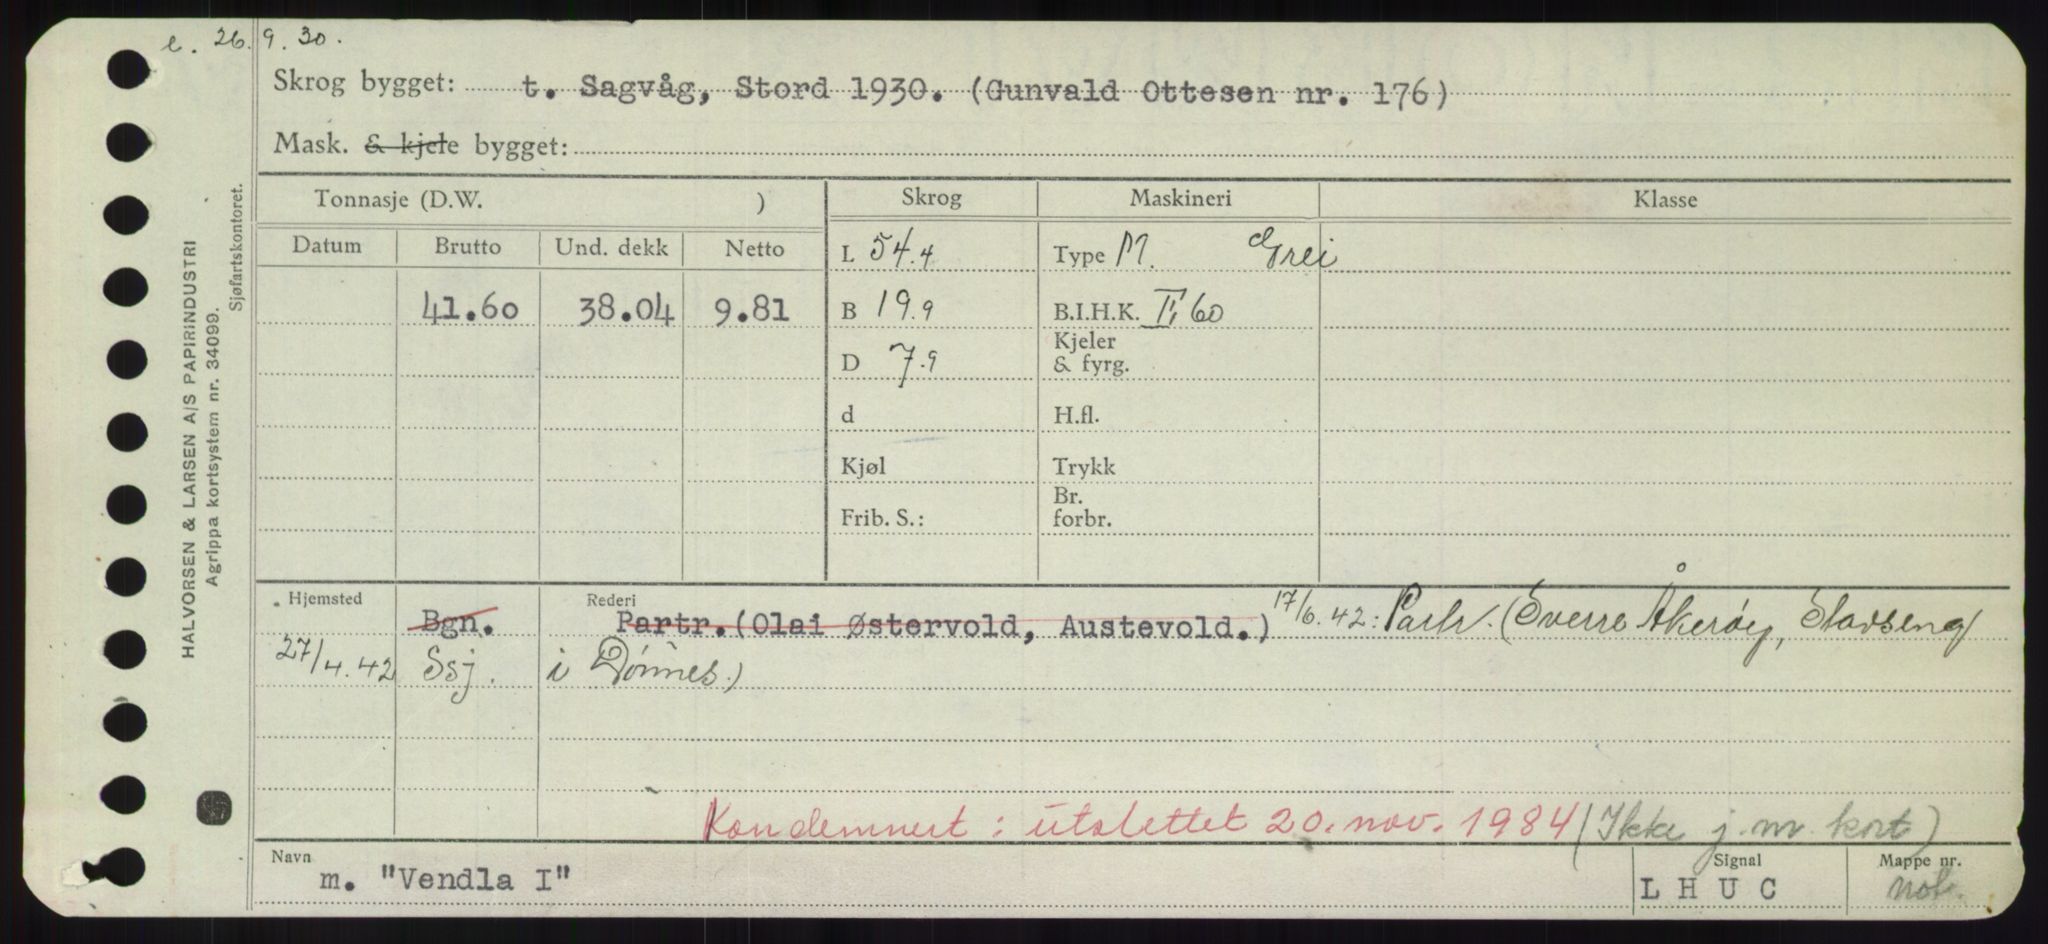 e. 26.9.30.
Skrog bygget: t. Sagvåg, Stord 1930. (Gunvald Ottesen nr. 176)
Mask. & kjele bygget:
Tonnasje (D.W. ) Skrog Maskineri Klasse
Datum Brutto Und. dekk Netto
L 54.4 Type M. Grei
41.60 38.04 9.81 B 19.9 B.I.H.K. II, 60
D 7.9 Kjeler & fyrg.
d H.fl.
Kjøl Trykk
Frib. S.: Br. forbr.
Hjemsted Rederi
Bgn. Partr. (Olai Østervold, Austevold.) 17/6.42: Partr. (Sverre Åkerøy, Slavseng
27/4.42 Ssj. i Dønnes.)
Kondemnert: utslettet 20. nov. 1984 (Ikke j.m. kort)
Navn Signal Mappe nr.
m. "Vendla I" LHUC not.
HALVORSEN & LARSEN A/S PAPIRINDUSTRI
Agrippa kortsystem nr. 34099.
Sjøfartskontoret.